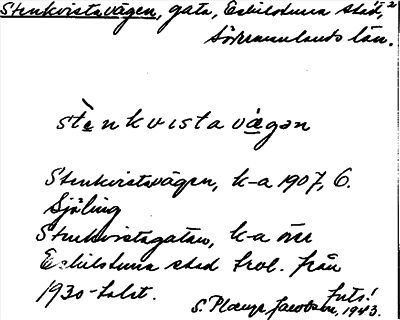 Stenkvistavägen, gata, Eskilstuna stad, 2
Södermanlands län.
stènkvistavägən
Stenkvistavägen, k-a 1907, 6.
Sjöling
Stenkvistagatan, k-a över
Eskilstuna stad trol. från
1930-talet.
forts!
S. Jacobsen, 1943.